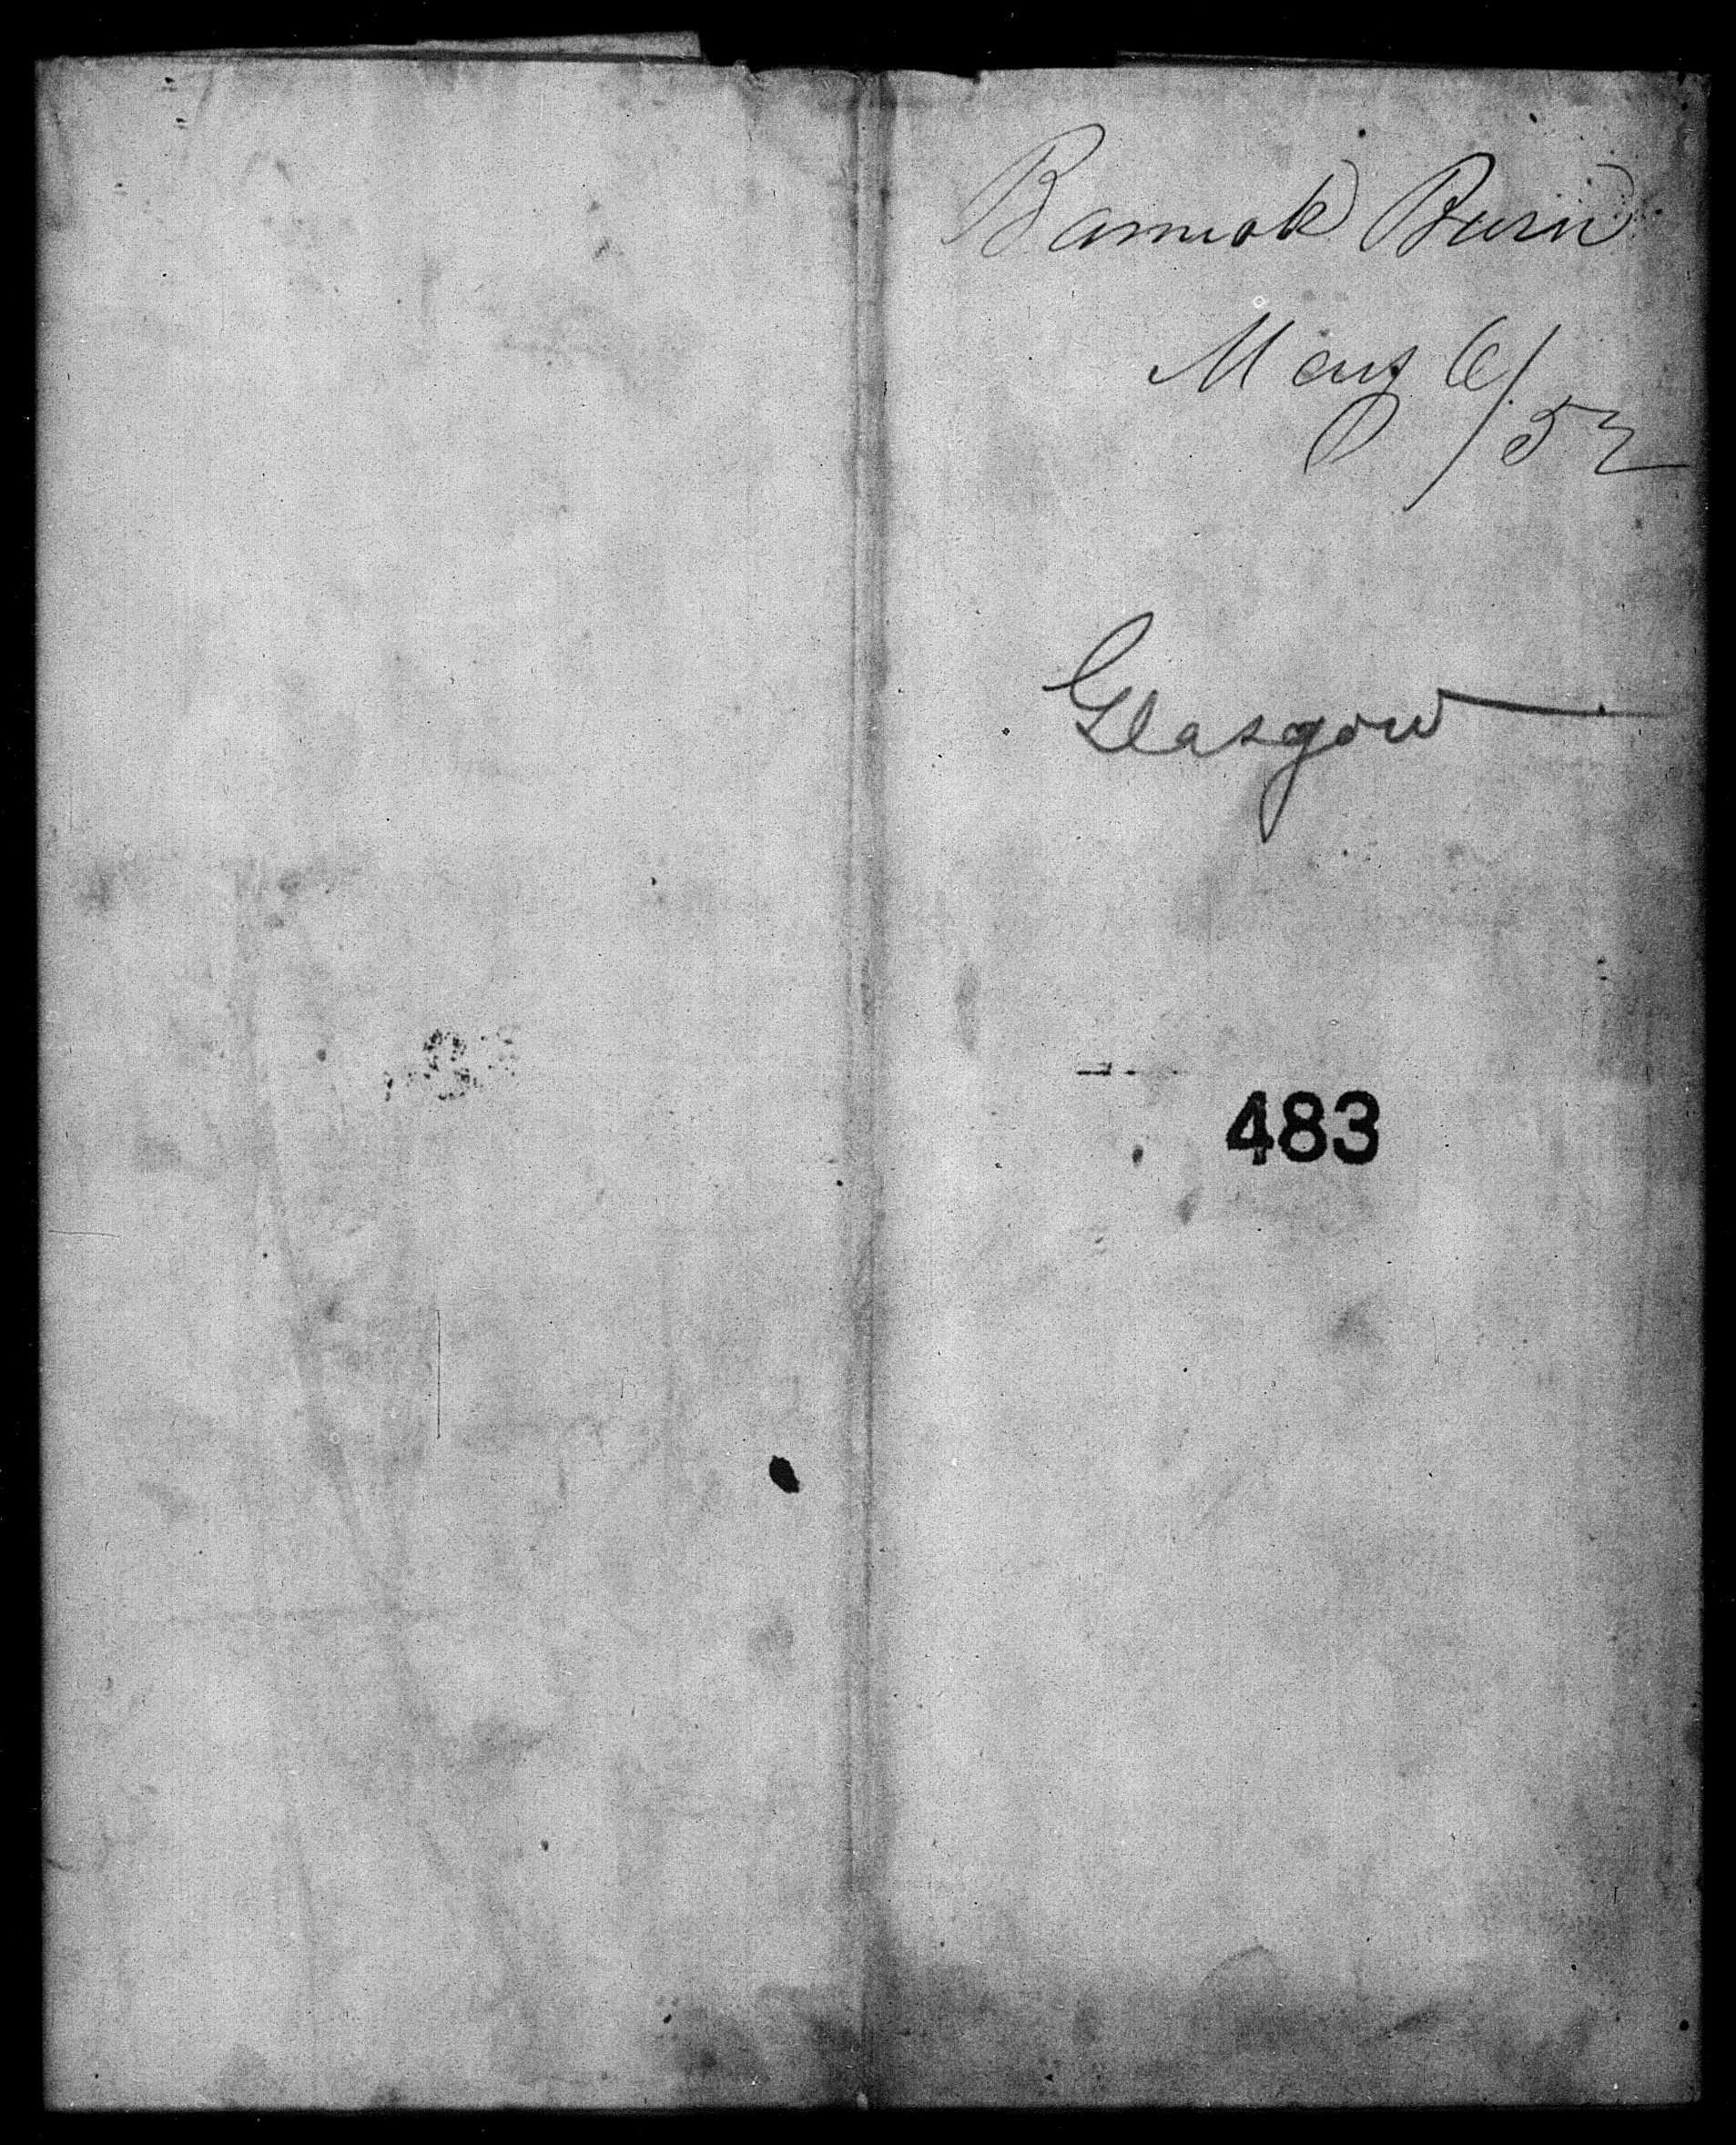 Bannok Burn
May 6/52
Glasgow
483